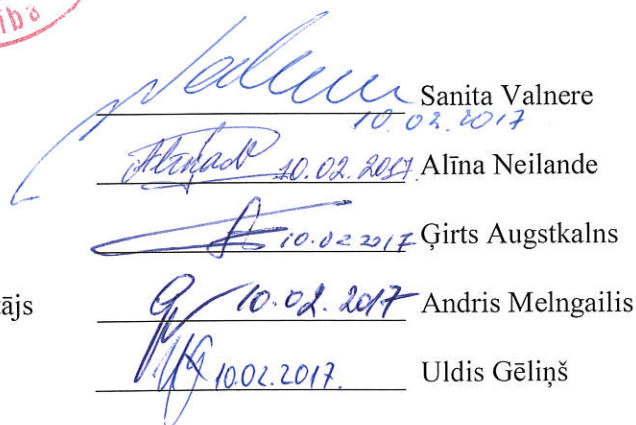 Sanita Valnere
10.02.2017
10.02.2017 Alīna Neilande
10.02 2017 Ģirts Augstkalns
tājs 10.02.2017 Andris Melngailis
10.02.2017. Uldis Gēliņš